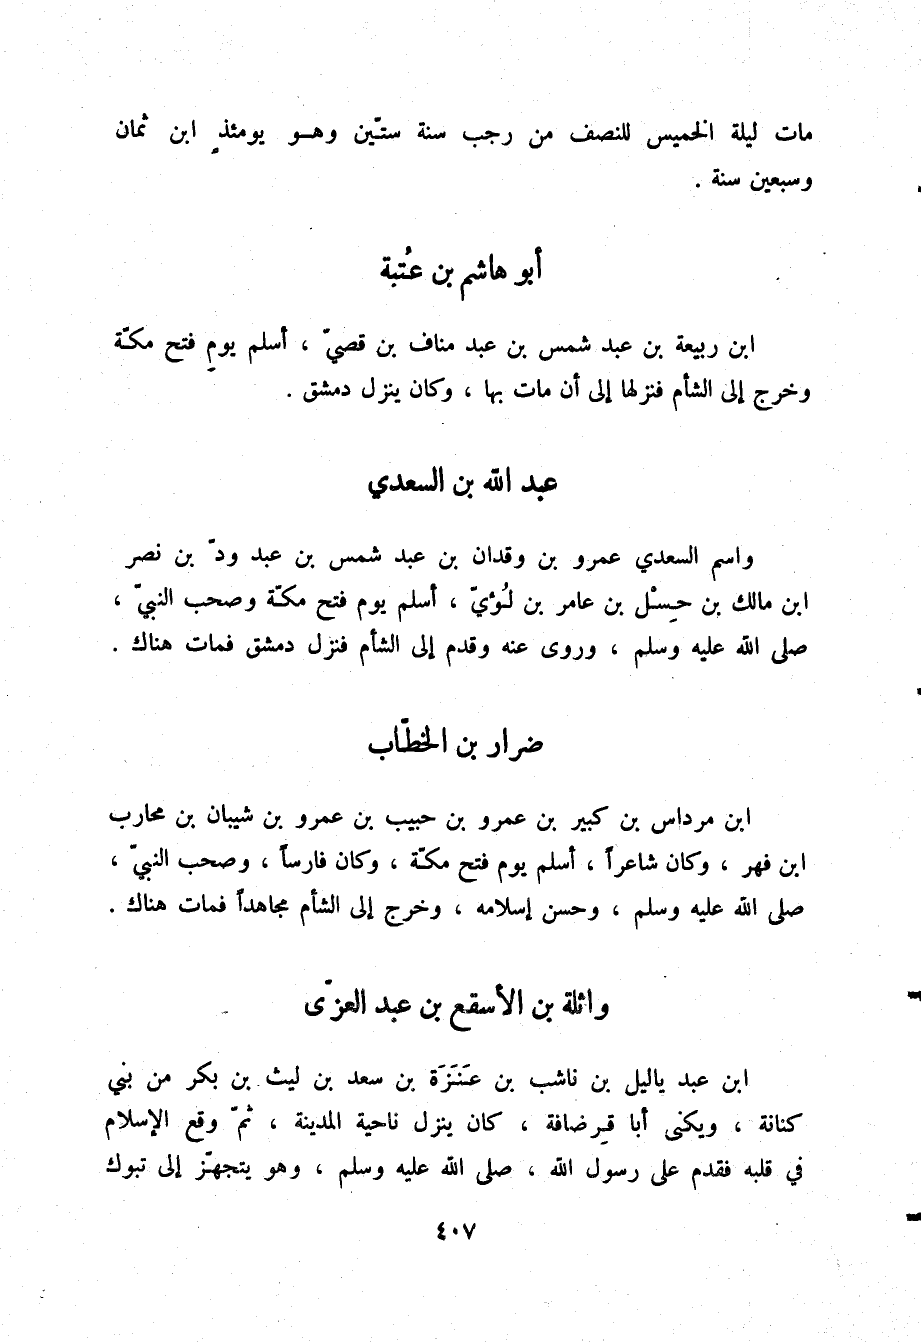 مات ليلة الخميس للنصف من رجب سنة ستّين وهـو يومئذٍ ابن ثمان
وسبعين سنة .
أبو هاشم بن عُتبة
ابن ربيعة بن عبد شمس بن عبد مناف بن قصيّ ، أسلم يوم فتح مكّة
وخرج إلى الشأم فنزلها إلى أن مات بها ، وكان ينزل دمشق .
عبد الله بن السعدي
واسم السعدي عمرو بن وقدان بن عبد شمس بن عبد ودّ بن نصر
ابن مالك بن حِسْل بن عامر بن لُؤيّ ، أسلم يوم فتح مكّة وصحب النبيّ ،
صلى الله عليه وسلم ، وروى عنه وقدم إلى الشأم فنزل دمشق فمات هناك .
ضرار بن الخطّاب
ابن مرداس بن كبير بن عمرو بن حبيب بن عمرو بن شيبان بن محارب
ابن فهر ، وكان شاعراً ، أسلم يوم فتح مكّة ، وكان فارساً ، وصحب النبيّ ،
صلى الله عليه وسلم ، وحسن إسلامه ، وخرج إلى الشأم مجاهداً فمات هناك .
واثلة بن الأسقع بن عبد العزّى
ابن عبد ياليل بن ناشب بن عَنَزَة بن سعد بن ليث بن بكر من بني
كنانة ، ويكنى أبا قِرضافة ، كان ينزل ناحية المدينة ، ثمّ وقع الإسلام
في قلبه فقدم على رسول الله ، صلى الله عليه وسلم ، وهو يتجهّز إلى تبوك
٤٠٧